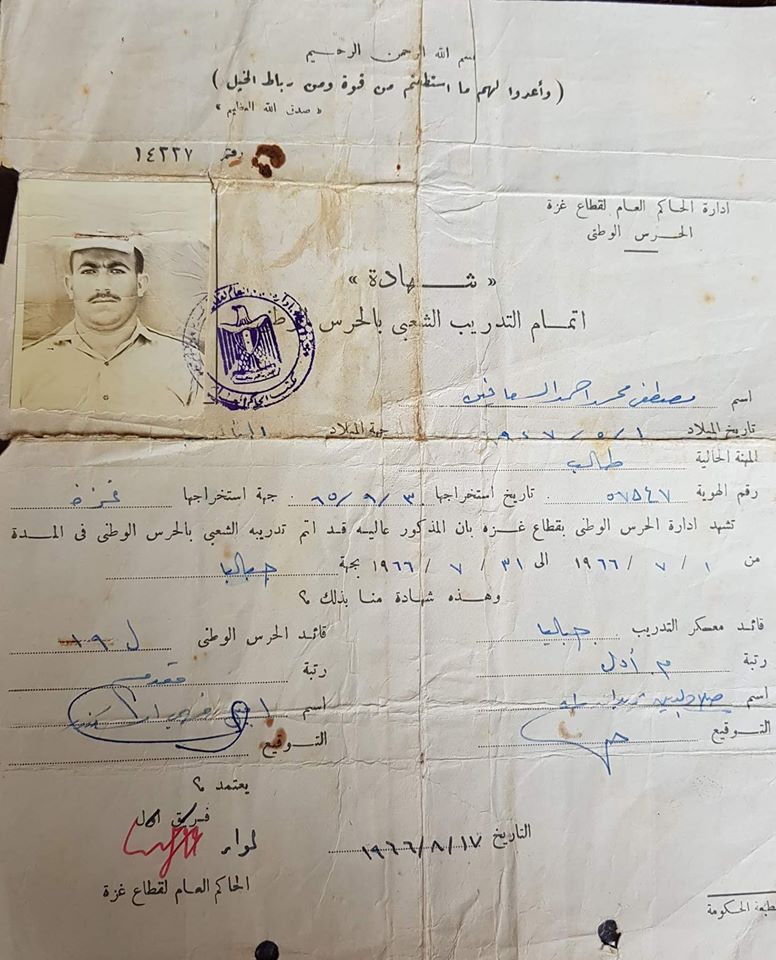 بسم الله الرحمن الرحيم
( وأعدوا لهم ما استطعتم من قوة ومن رباط الخيل )
« صدق الله العظيم »
رقم ١٤٢٢٧
ادارة الحاكم العام لقطاع غزة
الحرس الوطنى
« شـــهادة »
اتمـام التدريب الشعبي بالحرس الوطنى
اسم مصطفى محمد احمد السعافين
تاريخ الميلاد ١ / ٥ / ٩٤٧ جهة الميلاد
المهنة الحالية طالب
رقم الهوية ٥٧٥٤٧ تاريخ استخراجها ٣ / ٩ / ٦٥ جهة استخراجها غزة
تشهد ادارة الحرس الوطنى بقطاع غـزه بان المذكور عاليـه قـد اتم تدريبه الشعبي بالحرس الوطنى فى المـدة
من ١ / ٧ / ١٩٦٦ الى ٣١ / ٧ / ١٩٦٦ بجهة جباليا
وهـذه شهادة منـا بذلك ؟
قائد معسكر التدريب جباليا
رتبة م. أول
اسم صلاح الدين
التـوقيع
قائـد الحرس الوطنى ل ١٩
رتبة مقدم
اسم
التـوقيع
يعتمد ؟
فريق اول
لواء
الحاكم العـام لقطاع غزة
التاريخ ١٧ / ٨ / ١٩٦٦
مطبعة الحكومة